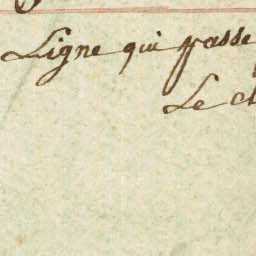 Ligne qui passe
Le